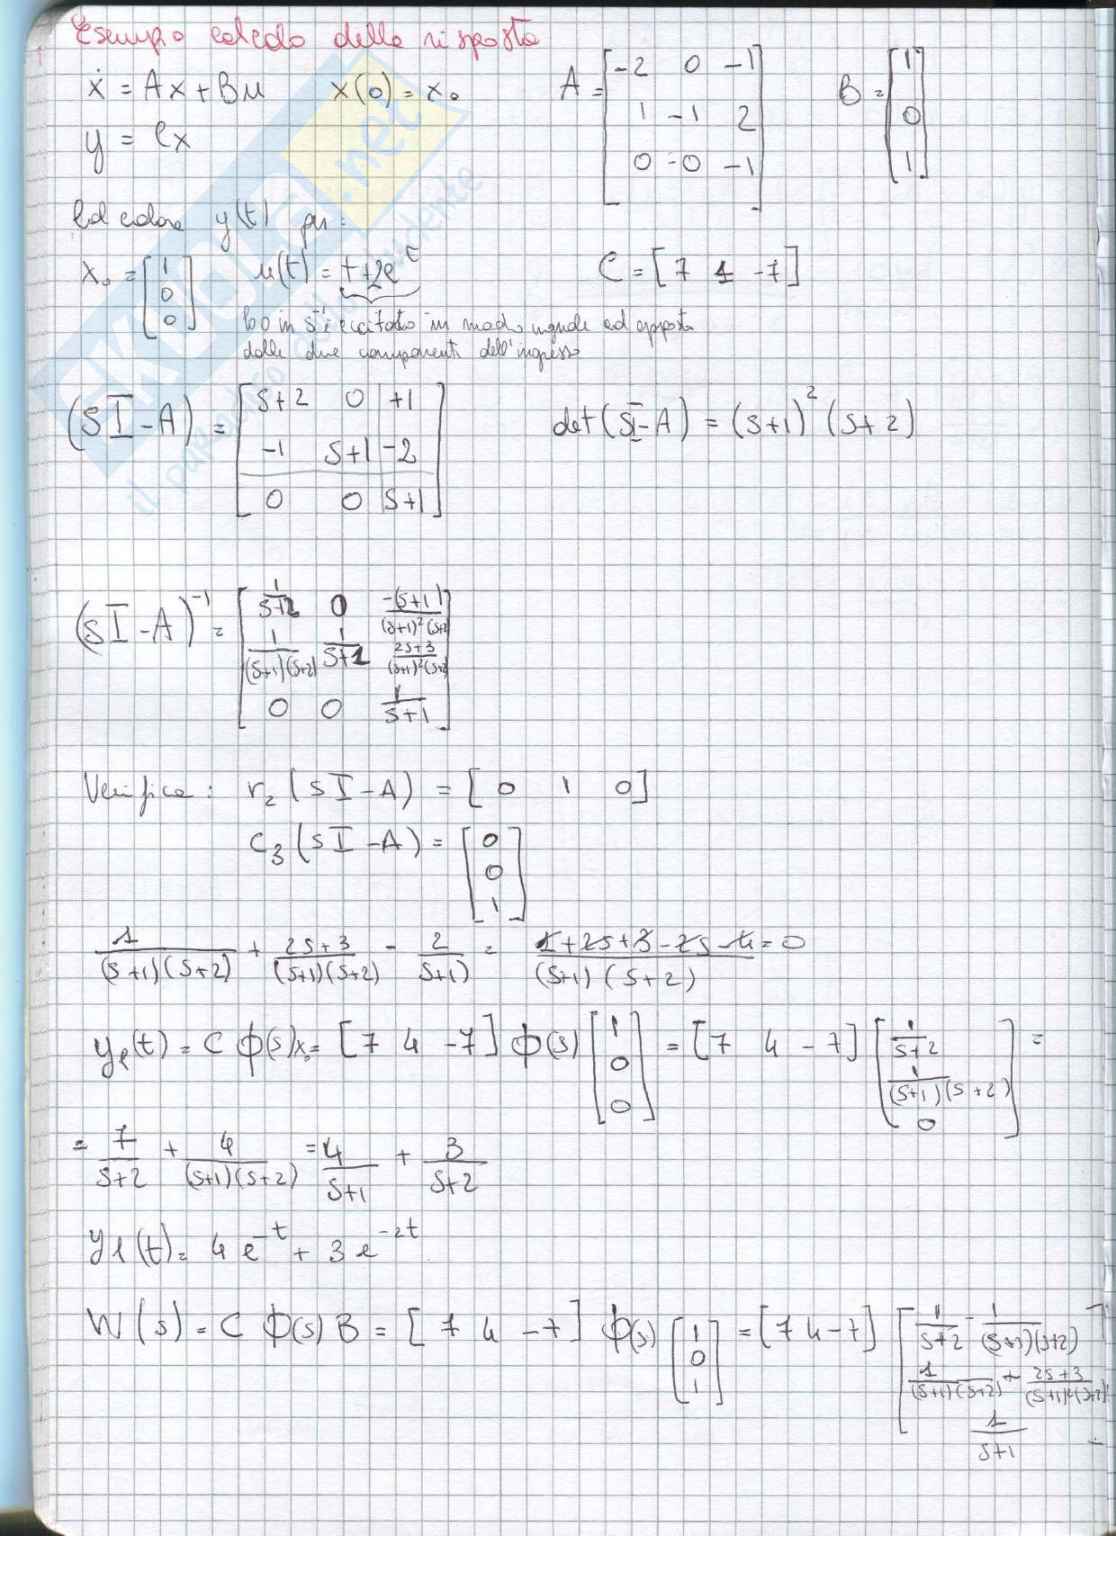 Esempio calcolo della risposta
ẋ = Ax + Bu   x(0) = x₀   A = [-2 0 -1; 1 -1 2; 0 -0 -1]   B = [1; 0; 1]
y = Cx
Calcolare y(t) per:
x₀ = [1; 0; 0]   u(t) = t+2e^t   C = [7 4 -7]
eccitato in modo uguale ed opposto
dalle due componenti dell'ingresso
(sI-A) = [s+2 0 +1; -1 s+1 -2; 0 0 s+1]   det(sI-A) = (s+1)²(s+2)
(sI-A)⁻¹ = [1/(s+2) 0 -(s+1)/((s+1)²(s+2)); 1/((s+1)(s+2)) 1/(s+1) (2s+3)/((s+1)²(s+2)); 0 0 1/(s+1)]
Verifica: r₂(sI-A) = [0 1 0]
c₃(sI-A) = [0; 0; 1]
1/((s+1)(s+2)) + (2s+3)/((s+1)(s+2)) - 2/(s+1) = (1+2s+3-2s-4)/((s+1)(s+2)) = 0
y_l(t) = C ϕ(s)x₀ = [7 4 -7] ϕ(s) [1; 0; 0] = [7 4 -7] [1/(s+2); 1/((s+1)(s+2)); 0] =
= 7/(s+2) + 4/((s+1)(s+2)) = 4/(s+1) + 3/(s+2)
yl(t) = 4e^-t + 3e^-2t
W(s) = C ϕ(s) B = [7 4 -7] ϕ(s) [1; 0; 1] = [7 4 -7] [1/(s+2) - 1/((s+1)(s+2)); 1/((s+1)(s+2)) + (2s+3)/((s+1)²(s+2)); 1/(s+1)]
SKUOLA.net